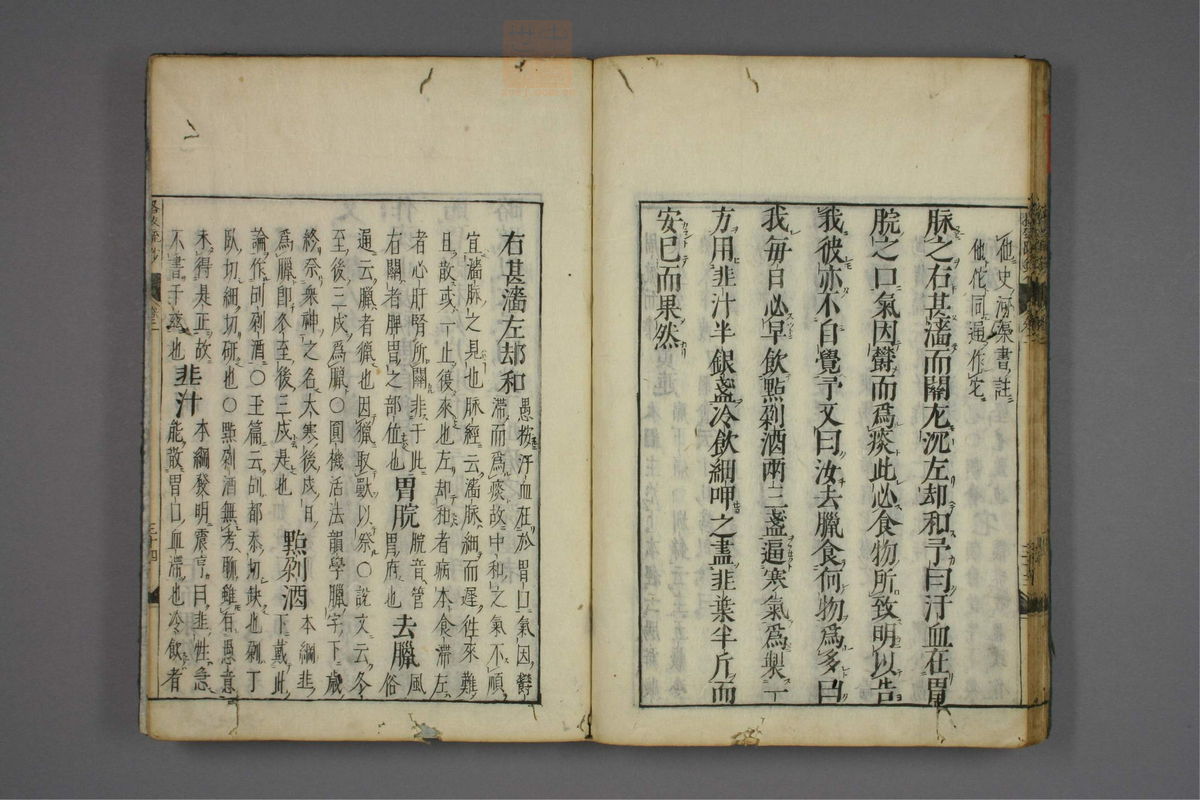 他史済渠書註
他佗同通作它
脉之右甚濇而關尤沉左却和予曰汙血在胃
脘之口氣因鬱而爲痰此必食物所致明以告
我彼亦不自覺予又曰汝去臘食何物爲多曰
我毎日必早飲點剁酒兩三盞逼寒氣爲製一
方用韭汁半銀盞冷飲細呷之盡韭葉半斤而
安已而果然
右甚濇左却和 愚按汙血在於胃口氣因鬱
滞而爲痰故中和之氣不順
宜濇脉之見也脉經云濇脉細而遲徃來難
且散或一止復來也左却和者病本食滞左
者心肝腎所關非于此
右關者脾胃之部位也 胃脘 脘音管
胃府也 去臘 風俗
通云臘者獵也因獵取獸以祭○説文云冬
至後三戌爲臘○圓機活法韻學臘字下歳
終祭衆神之名大寒後戌日
爲臘即冬至後三戌是也 點剁酒 本綱韭
下戴此
論作剁酒○玉篇云刴都切斫也剁丁
臥切細切斫也○點剁酒無考聊雖有愚意
未得是正故
不書于茲也 韭汁 本綱發明震亨曰韭性急
能散胃口血滞也冷飲者
三十四